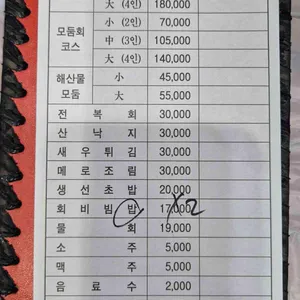 大 (4인) 180,000
모둠회 코스 小 (2인) 70,000
中 (3인) 105,000
大 (4인) 140,000
해산물 모둠 小 45,000
大 55,000
전복회 30,000
산낙지 30,000
새우튀김 30,000
메로조림 30,000
생선초밥 20,000
회비빔밥 17,000 X2
물회 19,000
소주 5,000
맥주 5,000
음료수 2,000